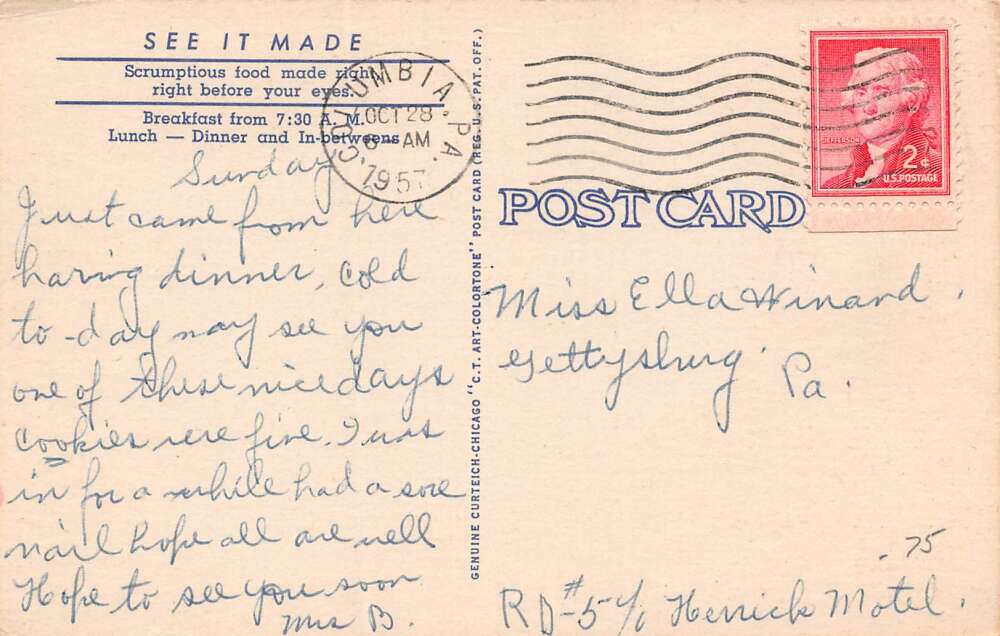 SEE IT MADE
Scrumptious food made right
right before your eyes.
Breakfast from 7:30 A. M.
Lunch — Dinner and In-betweens
Sunday
Just came from here
having dinner, cold
to-day may see you
one of these nice days
cookies were fine. I was
in for a while had a sore
nail hope all are well
Hope to see you soon
Mrs B.
GENUINE CURTEICH-CHICAGO "C.T. ART-COLORTONE" POST CARD (REG. U.S. PAT. OFF.)
COLUMBIA, PA.
OCT 28
AM
1957
JEFFERSON
2¢
U.S. POSTAGE
POST CARD
Miss Ella Winand,
Gettysburg
Pa.
.75
RD #5 c/o Herrick Motel.